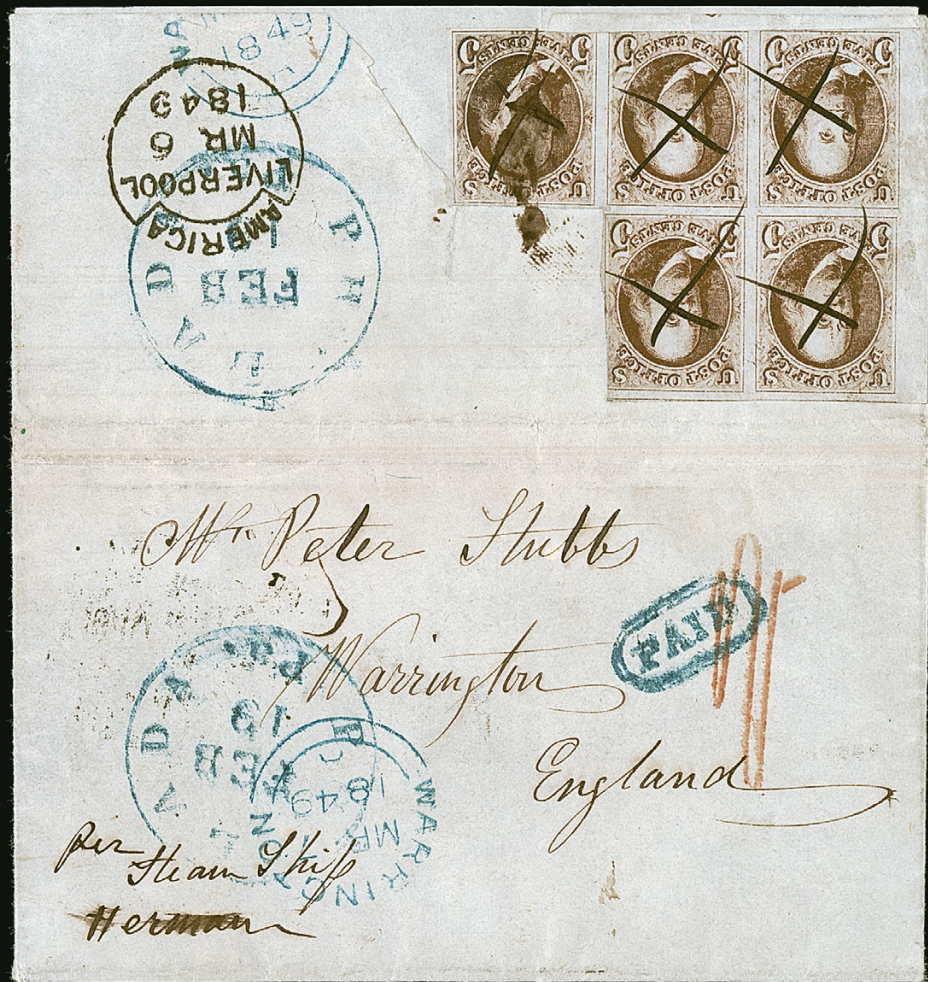 1849
AMERICA
LIVERPOOL
MR 6
1849
PHILADA
FEB
5 FIVE CENTS 5
U POST OFFICE S
5 FIVE CENTS 5
U POST OFFICE S
5 FIVE CENTS 5
U POST OFFICE S
5 FIVE CENTS 5
U POST OFFICE S
5 FIVE CENTS 5
U POST OFFICE S
Mr. Peter Stubbs
Warrington
England
PAID
PHILADA Pa.
FEB
19
WARRINGTON
MR
1849
per
Steam Ship
Herman